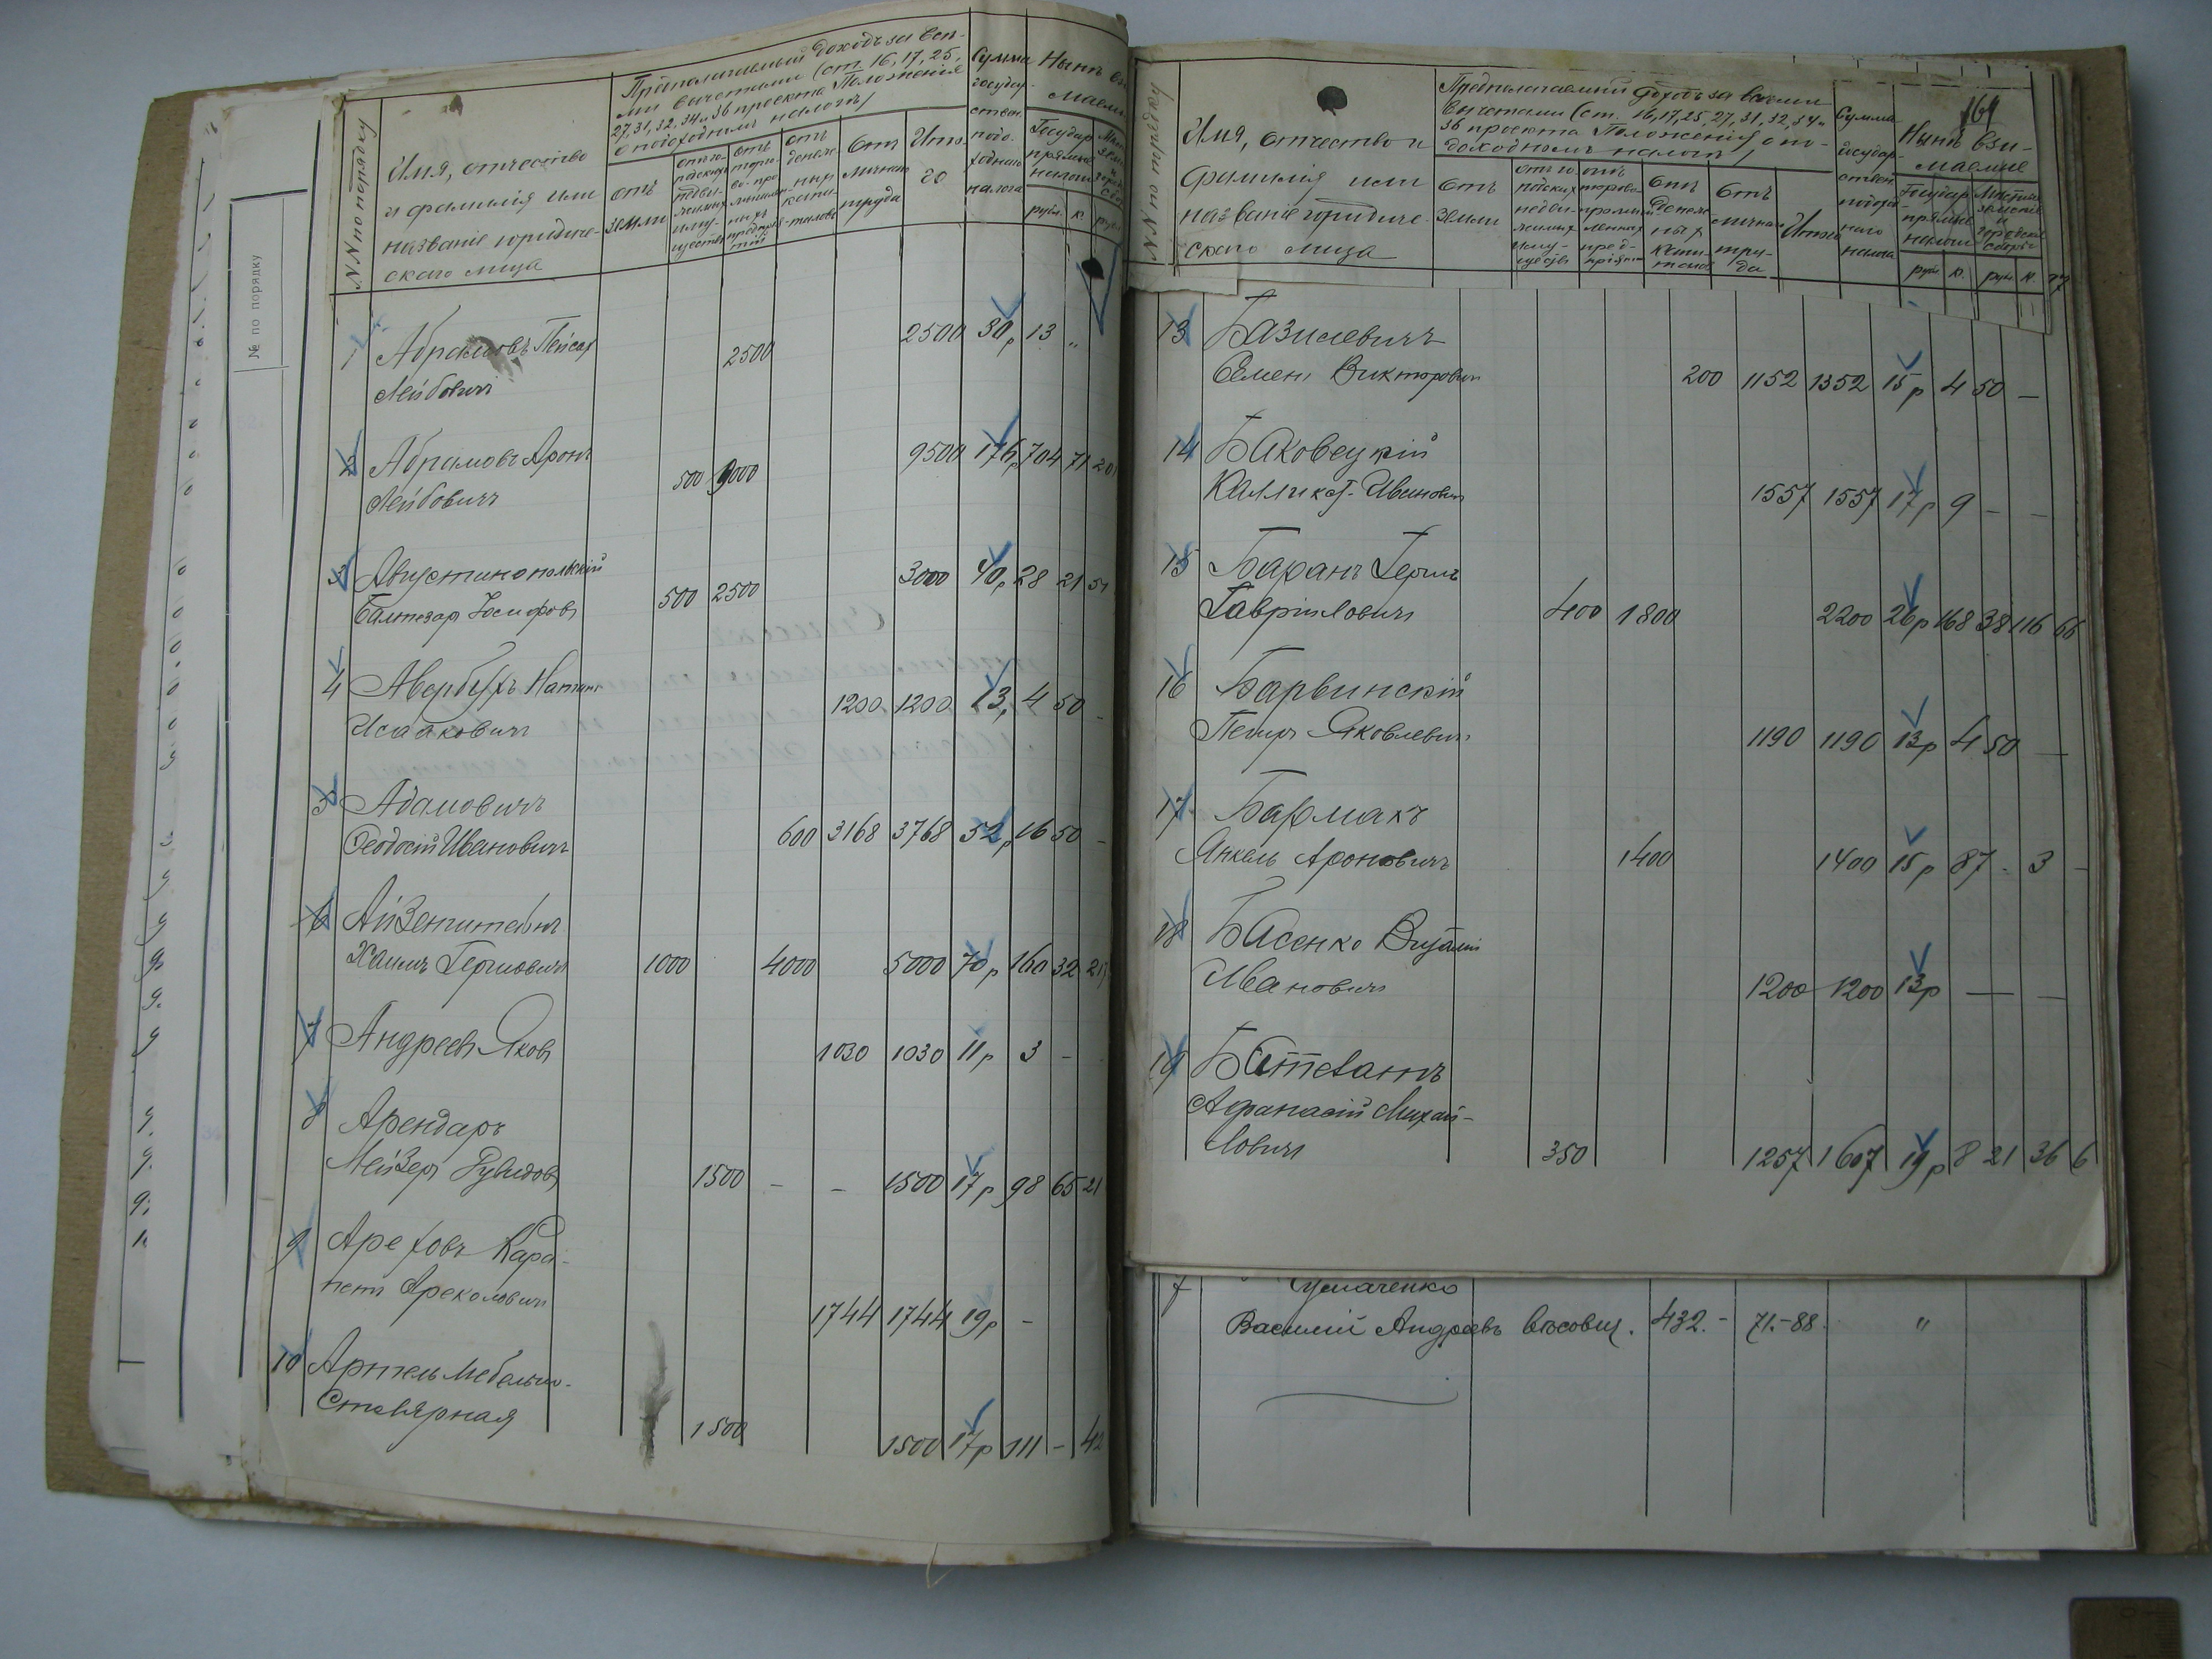 № по порядку
NN по порядку
Имя, отчество
и фамилія или
названіе юридиче-
скаго лица
Предполагаемый доходъ за всѣ-
ми вычетами (ст. 16, 17, 25,
27, 31, 32, 34 и 36 проекта Положенія
о подоходномъ налогѣ)
отъ
земли
отъ
отъ
денеж-
ныхъ
капи-
таловъ
отъ
личнаго
труда
Ито-
го
Сумма
государ
ствен.
подо-
ходнаго
налога
Нынѣ вз
маемы
Государ
прямые
налоги
рубл. к. рубл
1 Абрамовъ Пейсах
Лейбовичъ 2500 2500 30р 13 "
2 Абрамовъ Аронъ
Лейбовичъ 500 9000 9500 176р 704 71
3 Августинопольскій
Балтазар Іосифовъ 500 2500 3000 40р 28 21
4 Авербухъ Натанъ
Исааковичъ 1200 1200 13р 4 50 -
5 Адамовичъ
Ѳеодосій Ивановичъ 600 3168 3768 52р 16 50 -
6 Айзенштейнъ
Хаимъ Гершовичъ 1000 4000 5000 70р 160 32
7 Андреевъ Яковъ 1030 1030 11р 3 -
8 Арендаръ
Лейзеръ Рувидовъ 1500 - - 1500 17р 98 65 21
9 Ареховъ Кара-
петъ 1744 1744 19р -
10 Артель Мебельно-
Столярная 1500 1500 17р 111 - 42
164
NN по порядку
Имя, отчество и
фамилія или
названіе юридиче-
скаго лица
Предполагаемый доходъ за всѣми
вычетами (ст. 16, 17, 25, 27, 31, 32, 34 и
36 проекта Положенія о по-
доходномъ налогѣ)
отъ
земли
отъ го-
родских
недви-
жимых
иму-
ществъ
отъ
торгово-
промыш-
ленных
пред-
пріятій
отъ
денеж-
ных
капи-
талов
отъ
личнаго
тру-
да
Итого
Сумма
государ-
ствен
подоход-
наго
налога
Нынѣ взи-
маемые
Государ
прямые
налоги
Мѣстные
земскіе
и
городскіе
сборы
рубл. к. рубл. к.
13 Базилевичъ
Семенъ Викторовичъ 200 1152 1352 15р 4 50 —
14 Баковецкій
Каллист. Ивановичъ 1557 1557 17р 9 — —
15 Баранъ Гершъ
Гавріиловичъ 400 1800 2200 26р 168 38 116 66
16 Барвинскій
Петръ Яковлевичъ 1190 1190 13р 4 50 —
17 Бармакъ
Янкель Ароновичъ 1400 1400 15р 87 - 3 -
18 Басенко Виталій
Ивановичъ 1200 1200 13р — —
19 Батеванъ
Афанасій Михай-
ловичъ 350 1257 1607 19р 8 21 36 6
7
Василій Андреевъ вѣсовщ. 432.- 71.-88. "